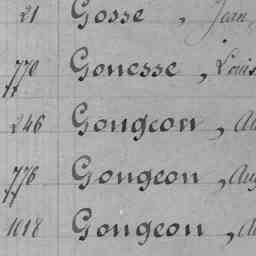 21 Gosse, Jean,
770 Gonesse, Louis
246 Gongeon, Au
776 Gongeon, Aug
1018 Gongeon, A